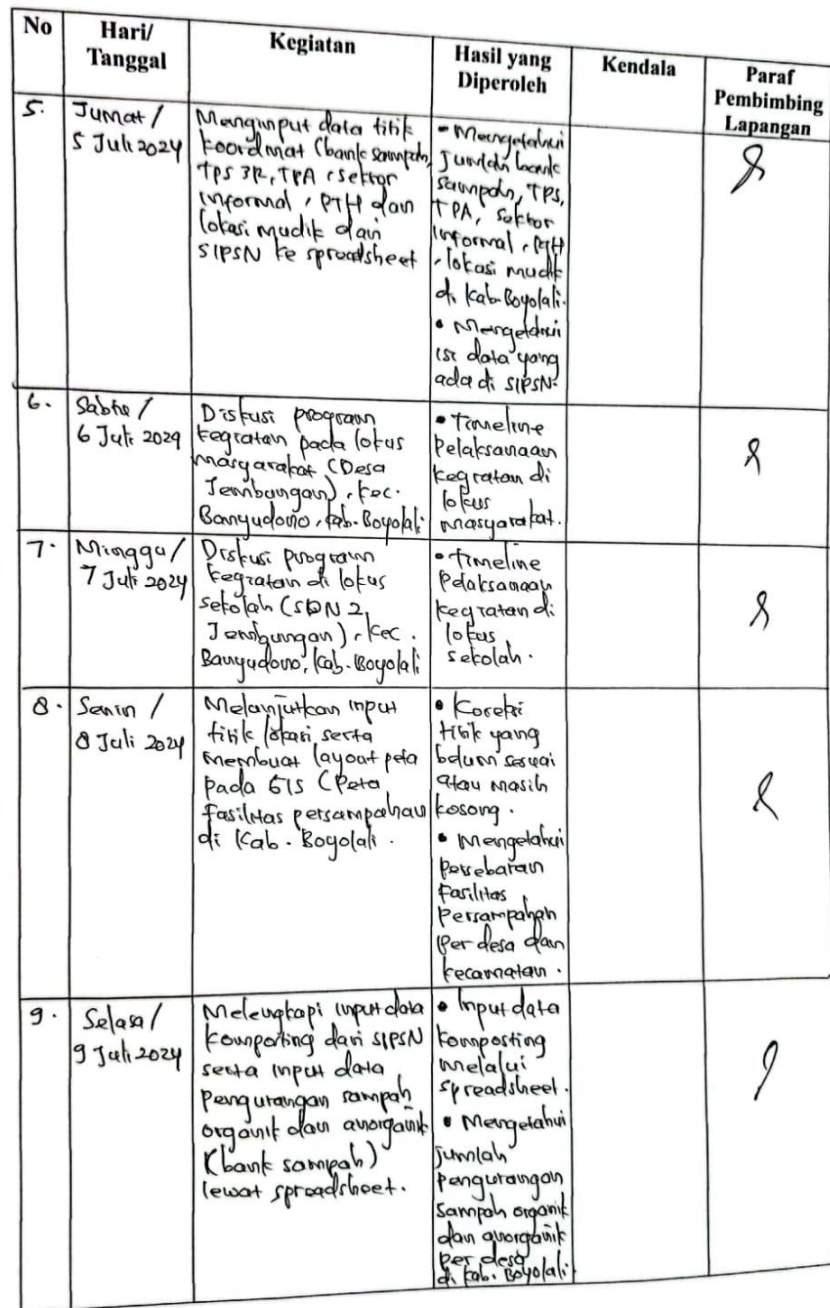 No
Hari/
Tanggal
Kegiatan
Hasil yang
Diperoleh
Kendala
Paraf
Pembimbing
Lapangan
5.
Jumat /
5 Juli 2024
Menginput data titik
koordinat (bank sampah,
TPS 3R, TPA, sektor
informal, RTH dan
lokasi mudik dari
SIPSN ke spreadsheet
• Mengetahui
jumlah bank
sampah, TPS,
TPA, sektor
informal, RTH
, lokasi mudik
di Kab. Boyolali.
• Mengetahui
isi data yang
ada di SIPSN.
6.
Sabtu /
6 Juli 2024
Diskusi program
kegiatan pada lokus
masyarakat (Desa
Jembungan), Kec.
Banyudono, Kab. Boyolali
• Timeline
Pelaksanaan
kegiatan di
lokus
masyarakat.
7.
Minggu /
7 Juli 2024
Diskusi program
kegiatan di lokus
sekolah (SDN 2
Jembungan), Kec.
Banyudono, Kab. Boyolali
• Timeline
Pelaksanaan
kegiatan di
lokus
sekolah.
8.
Senin /
8 Juli 2024
Melanjutkan input
titik lokasi serta
membuat layout peta
pada GIS (Peta
fasilitas persampahan
di Kab. Boyolali.
• Koreksi
titik yang
belum sesuai
atau masih
kosong.
• Mengetahui
Persebaran
Fasilitas
Persampahan
per desa dan
kecamatan.
9.
Selasa /
9 Juli 2024
Melengkapi input data
komposting dari SIPSN
serta input data
pengurangan sampah
organik dan anorganik
(bank sampah)
lewat spreadsheet.
• Input data
komposting
melalui
spreadsheet.
• Mengetahui
jumlah
pengurangan
sampah organik
dan anorganik
per desa
di Kab. Boyolali